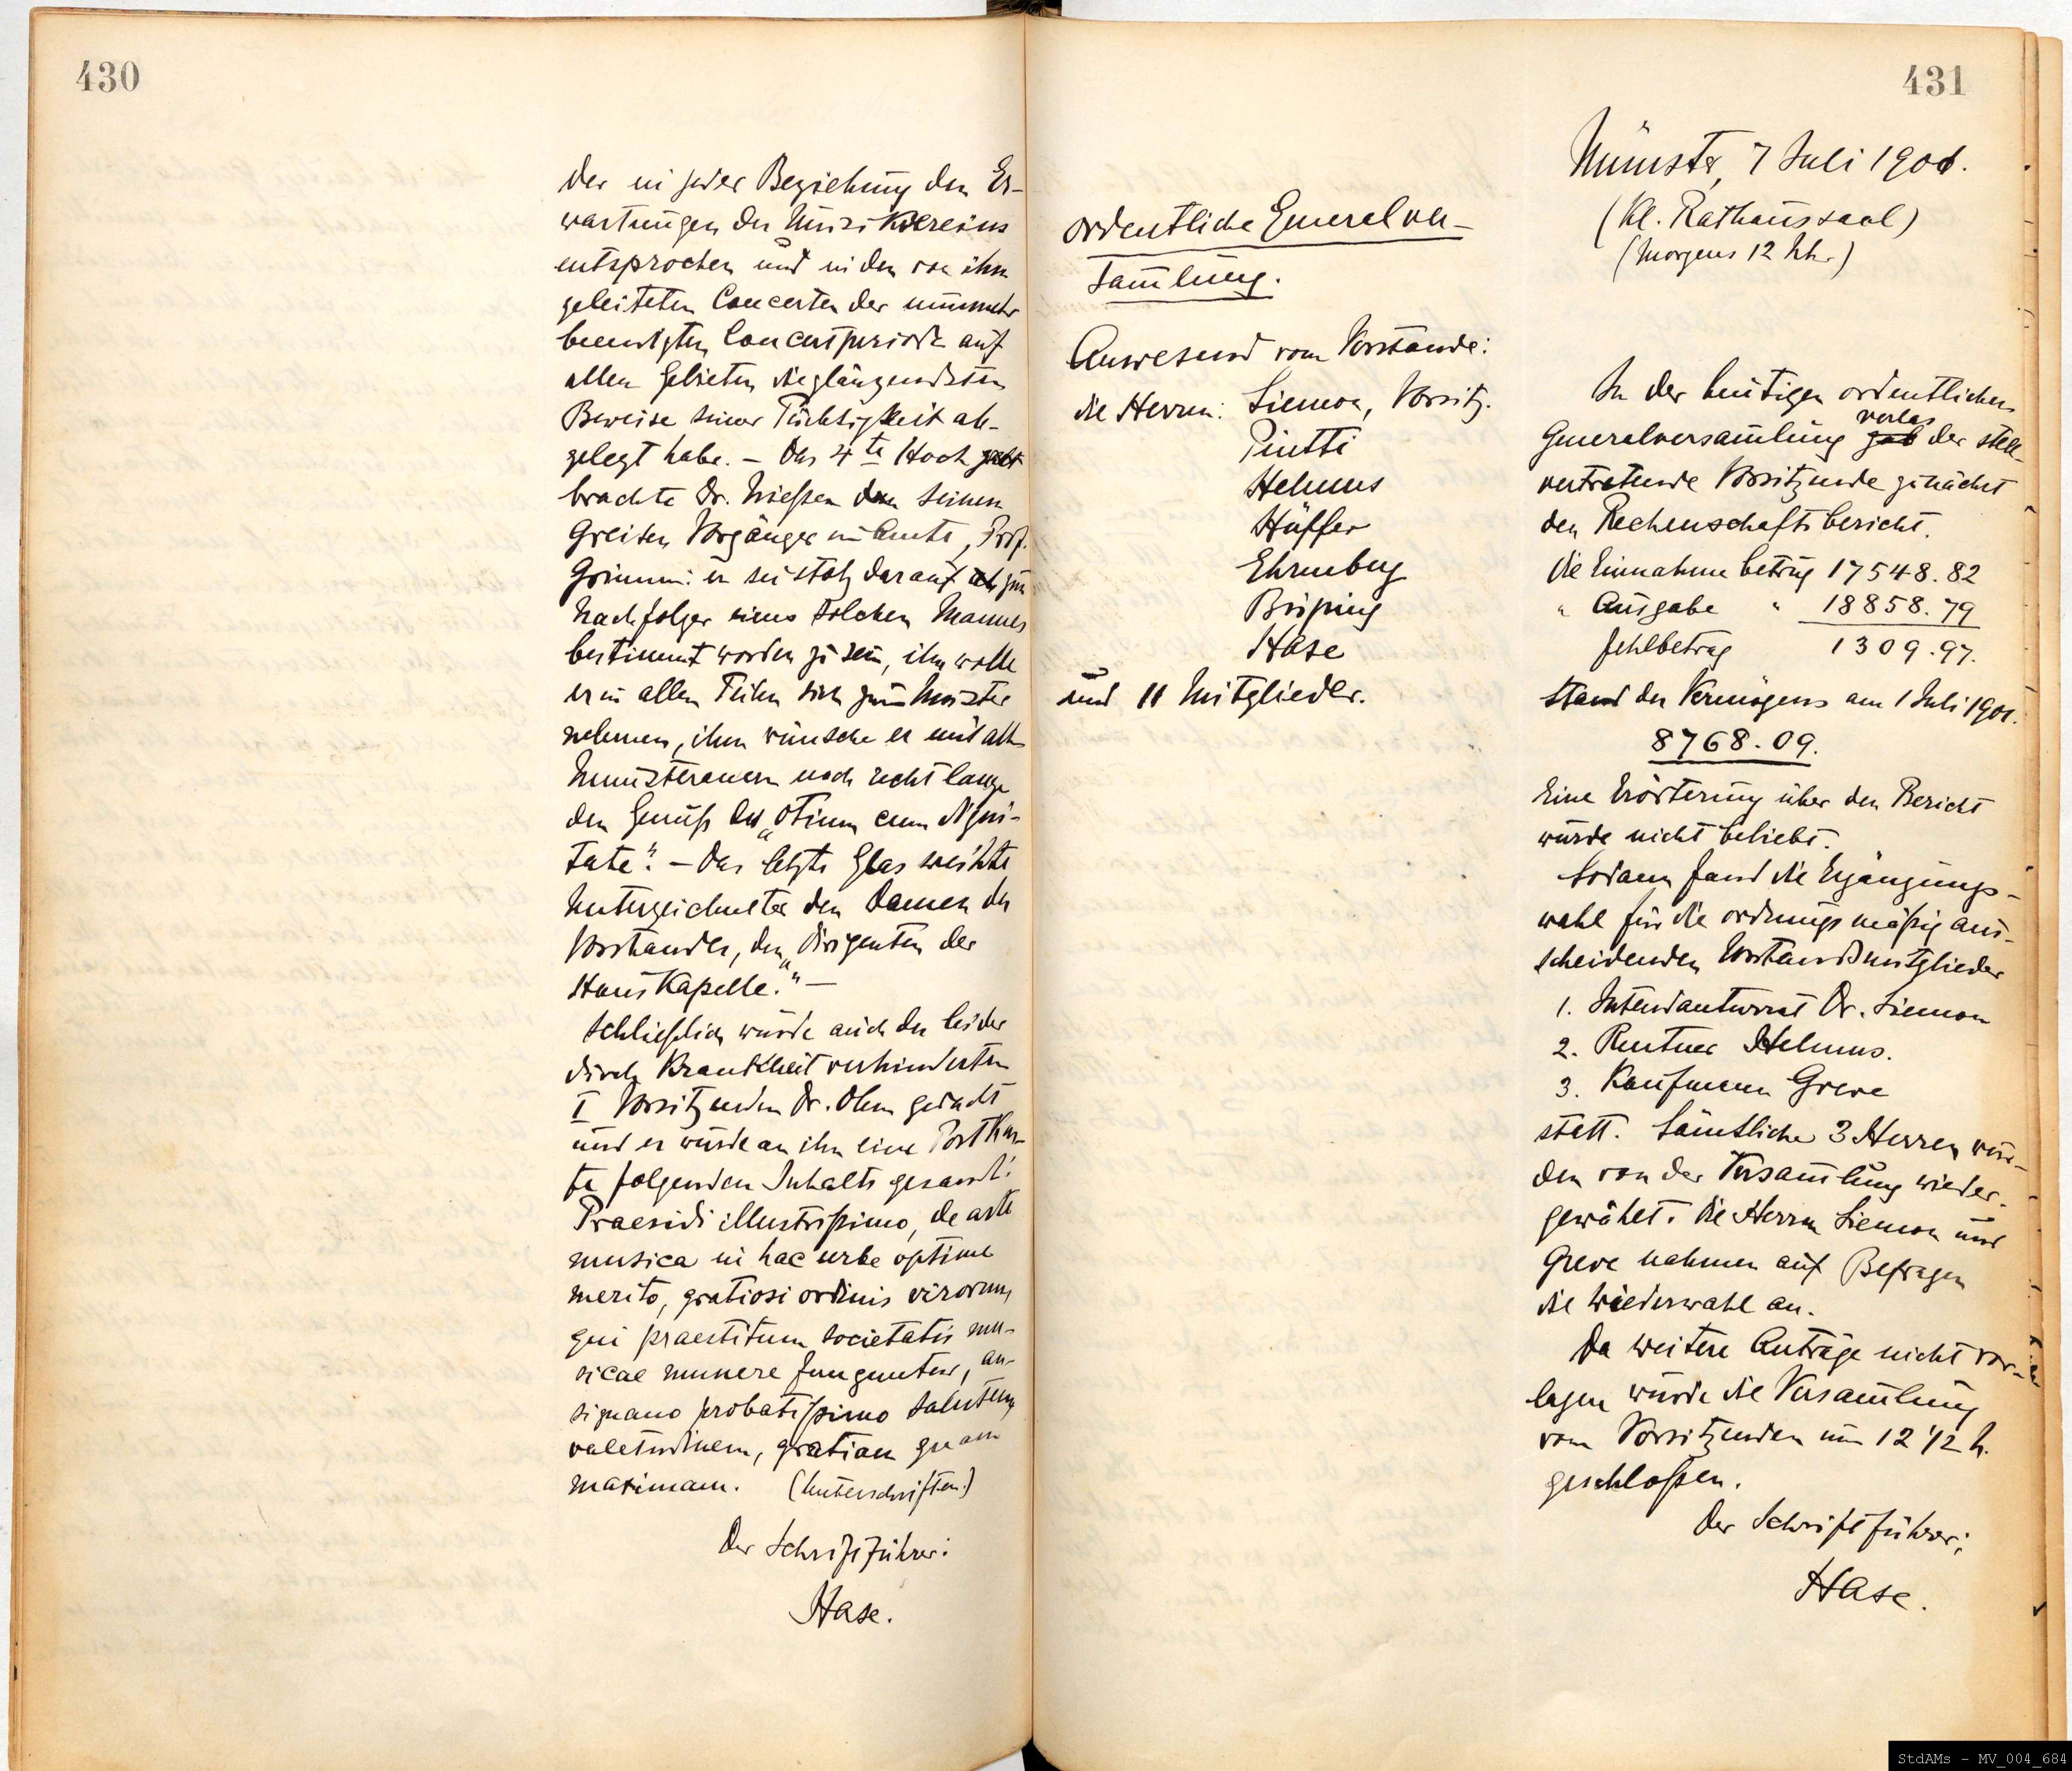 430
der in jeder Beziehung den Er-
wartungen des Musikvereins
entsprochen und in den von ihm
geleiteten Concerten der nunmehr
beendigten Concertperiode auf
allen Gebieten die glänzendsten
Beweise seiner Tüchtigkeit ab-
gelegt habe. – Das 4te Hoch
brachte Dr. Niessen seinem
Greisen Vorgänger im Amte, Prof.
Grimm: er sei stolz darauf zum
Nachfolger eines solchen Mannes
bestimmt worden zu sein, ihn wolle
er in allen Teilen sich zum Muster
nehmen, ihm wünsche er mit allen
Münsteranern noch recht lange
den Genuß des „otium cum digni-
tate". – Das letzte Glas weihte
Unterzeichneter den Damen des
Vorstandes, den „Dirigenten der
Hauskapelle." –
Schließlich wurde auch des leider
durch Krankheit verhinderten
I Vorsitzenden Dr. Ohm gedacht
und es wurde an ihn eine Postkar-
te folgenden Inhalts gesandt:
Praesidi illustrissimo, de arte
musica in hac urbe optime
merito, gratiosi ordinis virorum,
qui praestitum societatis mu-
sicae munere funguntur, an-
signano probatissimo salutem,
valetudinem, gratiam quam
maximam. (Unterschriften.)
Der Schriftführer:
Hase.
431
Münster, 7 Juli 1901.
(Kl. Rathaussaal)
(Morgens 12 Uhr.)
Ordentliche Generalver-
sam̄lung.
Anwesend vom Vorstande:
die Herren: Siemon, Vorsitz.
Piutti
Helmus
Hüffer
Ehrenberg
Bisping
Hase
und 11 Mitglieder.
In der heutigen ordentlichen
verlas
Generalversam̄lung gab der stell-
vertretende Vorsitzende zunächst
den Rechenschaftsbericht.
Die Einnahme betrug 17548.82
" Ausgabe " 18858.79
Fehlbetrag 1309.97.
Stand des Vermögens am 1 Juli 1901.
8768.09.
Eine Erörterung über den Bericht
wurde nicht beliebt.
Sodann fand die Ergänzungs-
wahl für die ordnungsmäßig aus-
scheidenden Vorstandsmitglieder
1. Intendanturrat Dr. Siemon
2. Rentner Helmus.
3. Kaufmann Greve
statt. Sämtliche 3 Herren wur-
den von der Versam̄lung wieder-
gewählt. Die Herren Siemon und
Greve nahmen auf Befragen
die Wiederwahl an.
Da weitere Anträge nicht vor-
lagen wurde die Versam̄lung
vom Vorsitzenden um 12 1/2 h.
geschlossen.
Der Schriftführer:
Hase.
StdAMs - MV_004_684